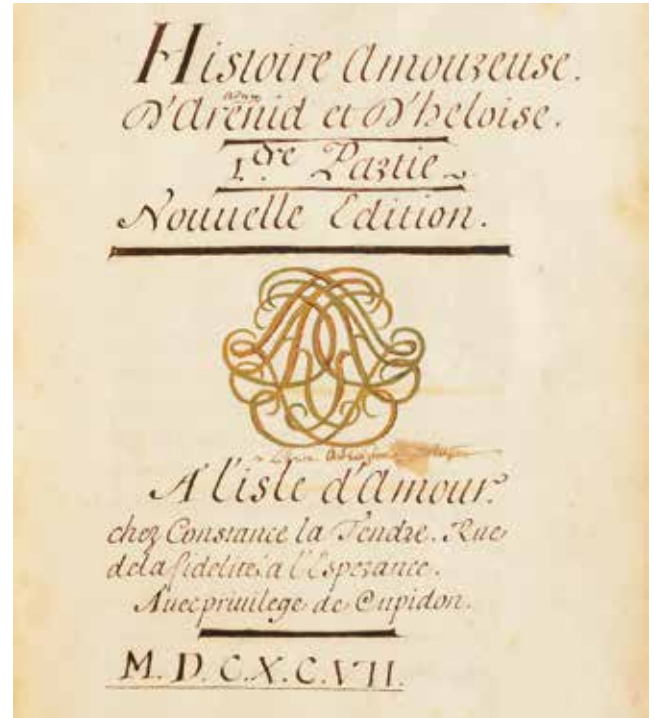 Histoire Amoureuse.
D'Arenid et D'heloise.
1.dre Partie
Nouuelle Edition.
A l'isle d'Amour.
chez Constance la Tendre. Rue
de la fidelité à l'Esperance.
Auec priuilege de Cupidon.
M. D. C. X. C. VII.